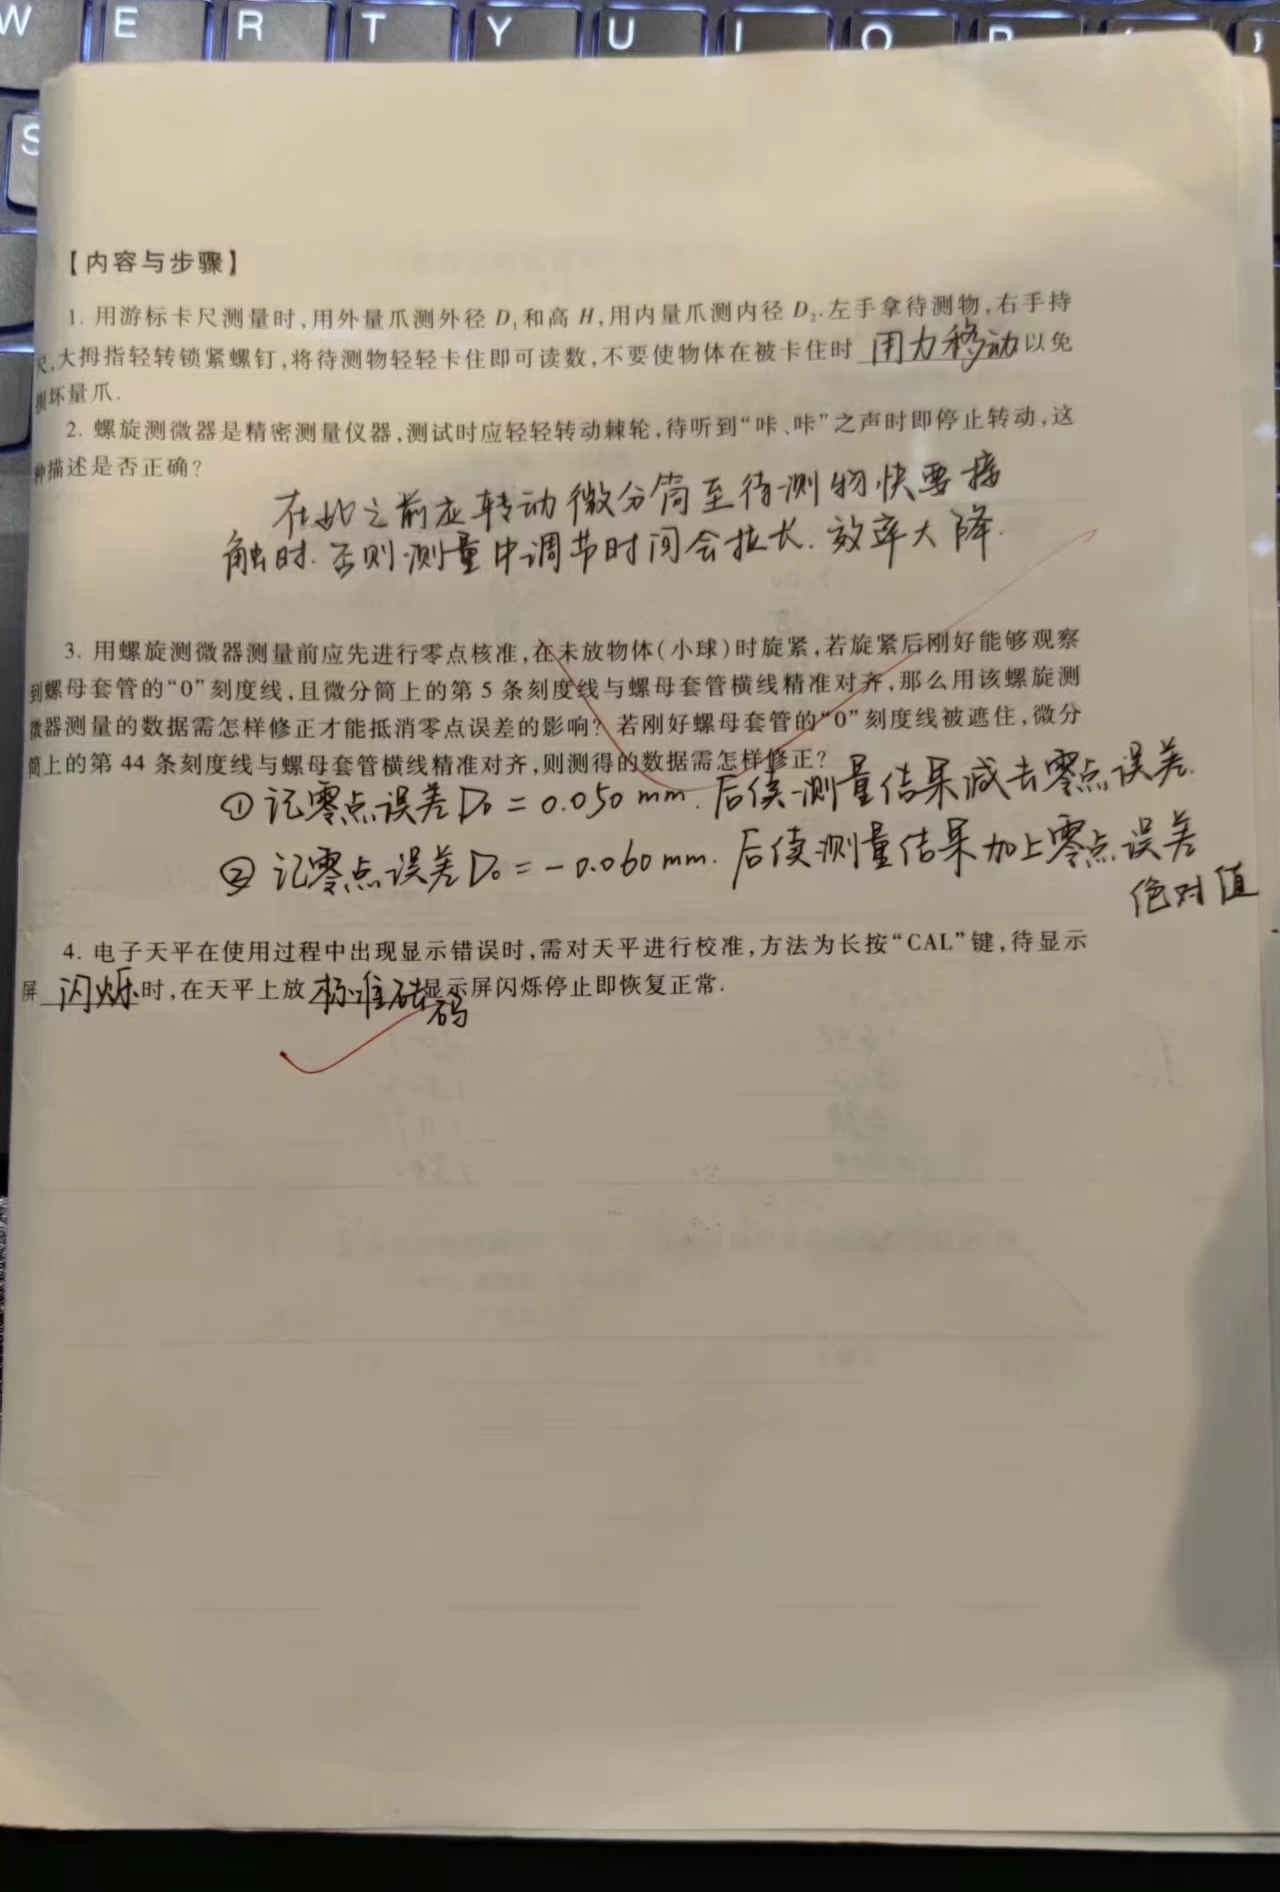 W E R T Y U I O P
S
【内容与步骤】
1. 用游标卡尺测量时,用外量爪测外径 D₁和高 H,用内量爪测内径 D₂.左手拿待测物,右手持
尺,大拇指轻转锁紧螺钉,将待测物轻轻卡住即可读数,不要使物体在被卡住时 用力移动以免
损坏量爪.
2. 螺旋测微器是精密测量仪器,测试时应轻轻转动棘轮,待听到“咔、咔”之声时即停止转动,这
种描述是否正确?
在此之前应转动微分筒至待测物快要接
触时.否则测量中调节时间会拉长.效率大降.
3. 用螺旋测微器测量前应先进行零点核准,在未放物体(小球)时旋紧,若旋紧后刚好能够观察
到螺母套管的“0”刻度线,且微分筒上的第 5 条刻度线与螺母套管横线精准对齐,那么用该螺旋测
微器测量的数据需怎样修正才能抵消零点误差的影响? 若刚好螺母套管的“0”刻度线被遮住,微分
筒上的第 44 条刻度线与螺母套管横线精准对齐,则测得的数据需怎样修正?
① 记零点误差D₀ = 0.050 mm. 后续测量结果减去零点误差.
② 记零点误差D₀ = -0.060 mm. 后续测量结果加上零点误差
绝对值
4. 电子天平在使用过程中出现显示错误时,需对天平进行校准,方法为长按“CAL”键,待显示
屏 闪烁时,在天平上放 标准砝码显示屏闪烁停止即恢复正常.